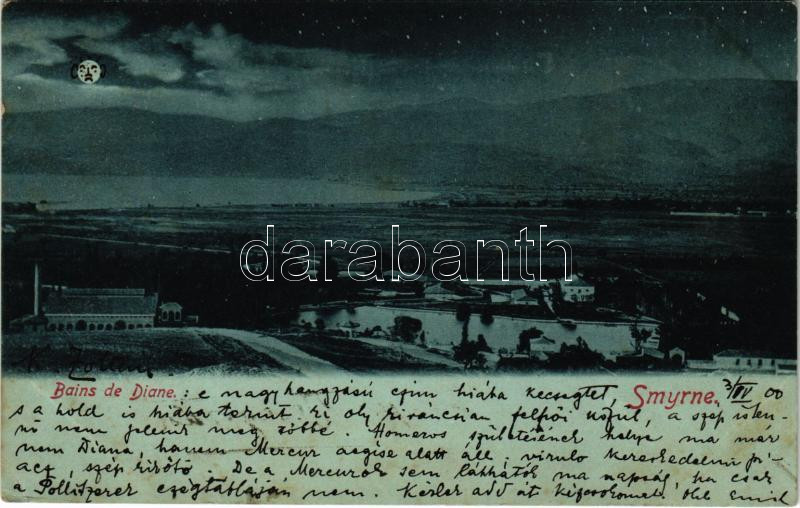 darabanth
K. Zoltán
Bains de Diane. : e nagyhangzású czim hiába kecsegtet, Smyrne. 3/IV 00
s a hold is hiába tekint ki oly kiváncsian felhői közül, a szép isten-
nő nem jelenik meg többé. Homeros születésének helye ma már
nem Diana, hanem Mercur aegise alatt áll: viruló kereskedelmi pi-
acz, szép kikötő. De a Mercurok sem láthatók ma napság, ha csak
a Pollitzerek czégtábláján nem.